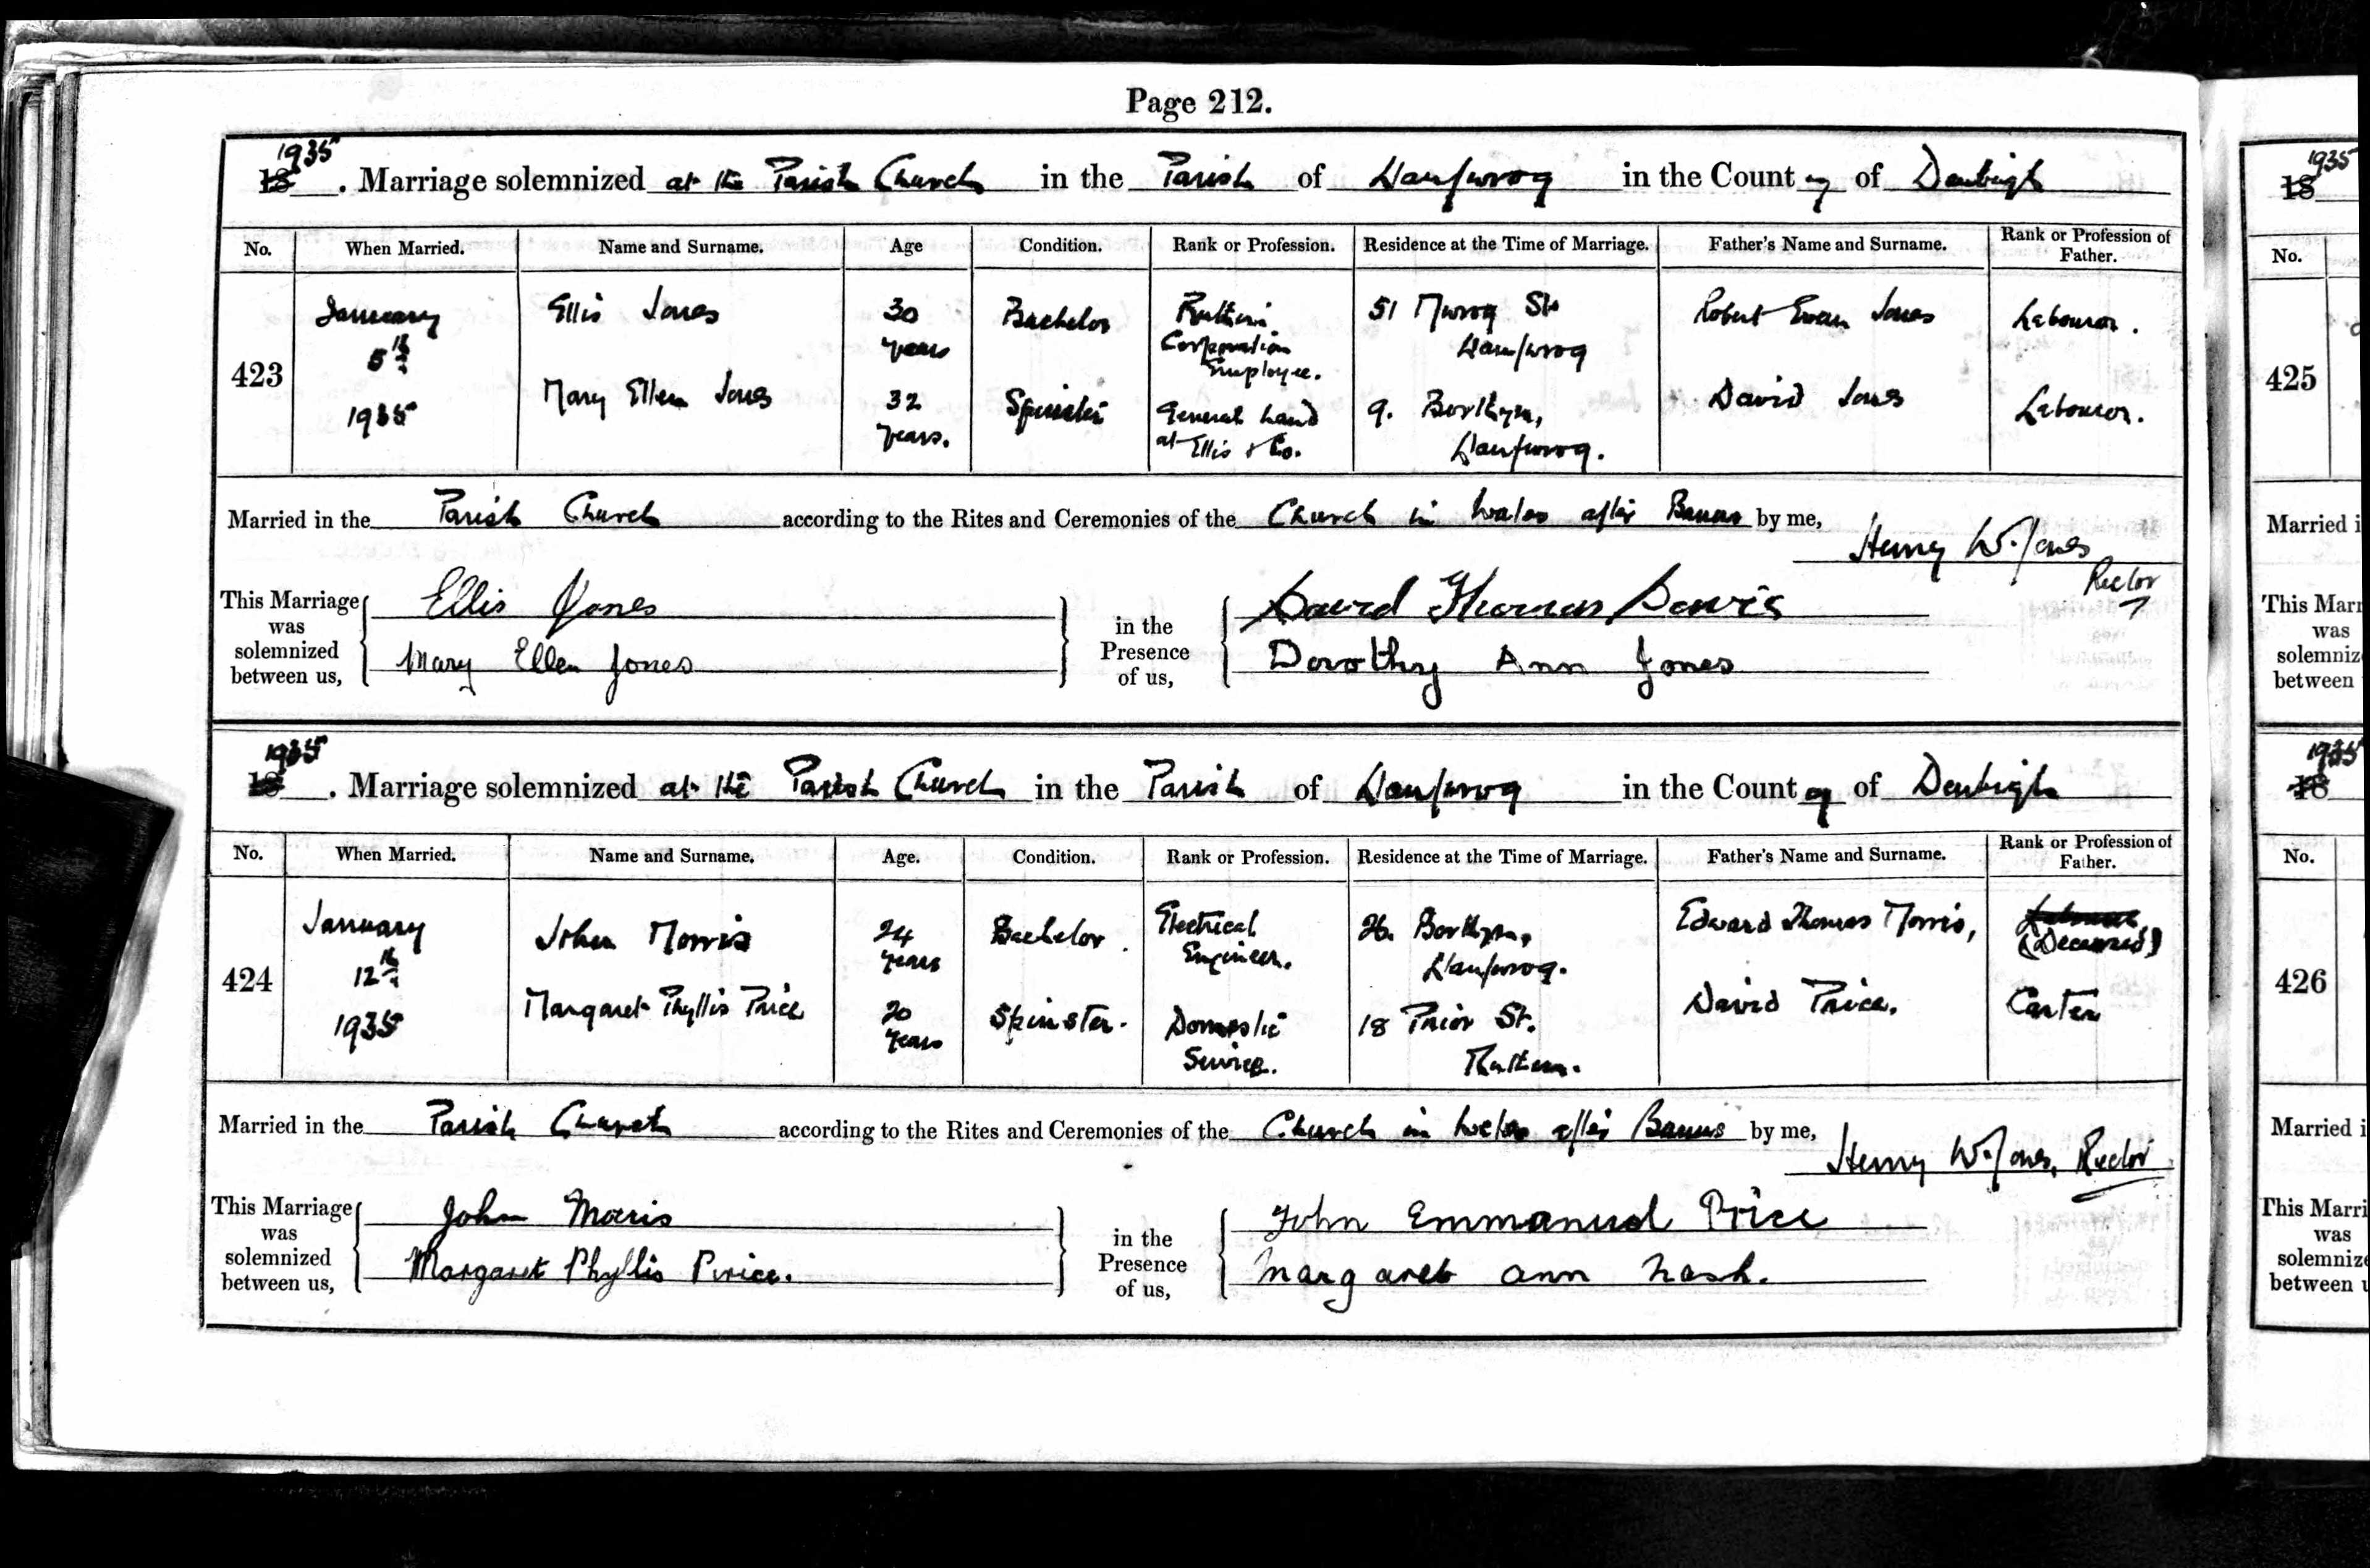 Page 212.
1935
18 . Marriage solemnized at the Parish Church in the Parish of Llanfwrog in the County of Denbigh
No. When Married. Name and Surname. Age Condition. Rank or Profession. Residence at the Time of Marriage. Father's Name and Surname. Rank or Profession of Father.
423 January 5th 1935 Ellis Jones 30 years Bachelor Ruthin Corporation Employee. 51 Mwrog St Llanfwrog Robert Evan Jones Labourer.
Mary Ellen Jones 32 years. Spinster General hand at Ellis & Co. 9. Borthyn, Llanfwrog. David Jones Labourer.
Married in the Parish Church according to the Rites and Ceremonies of the Church in Wales after Banns by me,
Henry W. Jones
Rector
This Marriage was solemnized between us, Ellis Jones
Mary Ellen Jones
in the Presence of us, David Thomas Davis
Dorothy Ann Jones
1935
18 . Marriage solemnized at the Parish Church in the Parish of Llanfwrog in the County of Denbigh
No. When Married. Name and Surname. Age. Condition. Rank or Profession. Residence at the Time of Marriage. Father's Name and Surname. Rank or Profession of Father.
424 January 12th 1935 John Morris 24 years Bachelor. Electrical Engineer. 26. Borthyn, Llanfwrog. Edward Thomas Morris, Labourer, (Deceased)
Margaret Phyllis Price 20 years Spinster. Domestic Service. 18 Prior St. Ruthin. David Price. Carter
Married in the Parish Church according to the Rites and Ceremonies of the Church in Wales after Banns by me,
Henry W. Jones, Rector
This Marriage was solemnized between us, John Morris
Margaret Phyllis Price.
in the Presence of us, John Emmanuel Price
Margaret Ann Nash.
1935
18
No.
425
Married i
This Marr
was
solemniz
between
1935
18
No.
426
Married i
This Marri
was
solemnize
between u